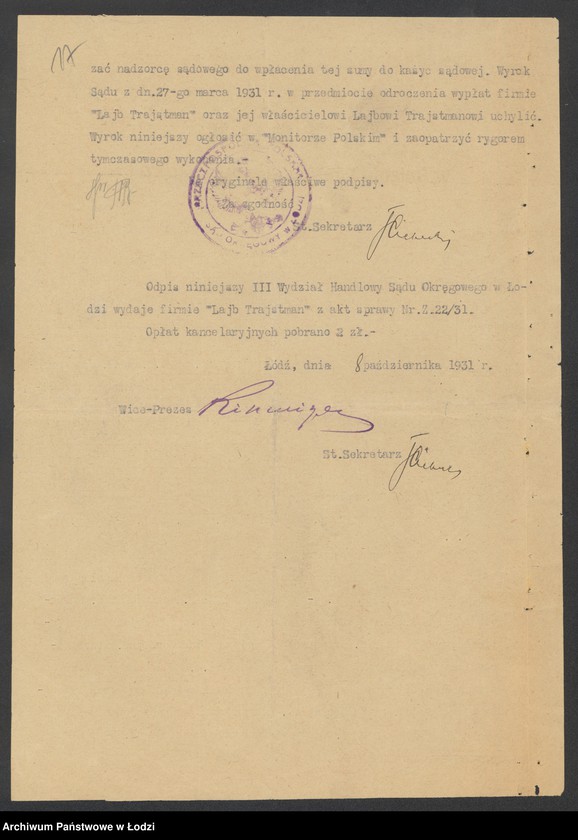 17
zać nadzorcę sądowego do wpłacenia tej sumy do kasyc sądowej. Wyrok
Sądu z dn.27-go marca 1931 r. w przedmiocie odroczenia wypłat firmie
"Lajb Trajstman" oraz jej właścicielowi Lajbowi Trajstmanowi uchylić.
Wyrok niniejszy ogłosić w "Monitorze Polskim" i zaopatrzyć rygorem
tymczasowego wykonania.-
oryginale właściwe podpisy.
Za zgodność
St.Sekretarz
Odpis niniejszy III Wydział Handlowy Sądu Okręgowego w Ło-
dzi wydaje firmie "Lajb Trajstman" z akt sprawy Nr.Z.22/31.
Opłat kancelaryjnych pobrano 2 zł.-
Łódź, dnia 8 października 1931 r.
Wice-Prezes
St.Sekretarz
Archiwum Państwowe w Łodzi